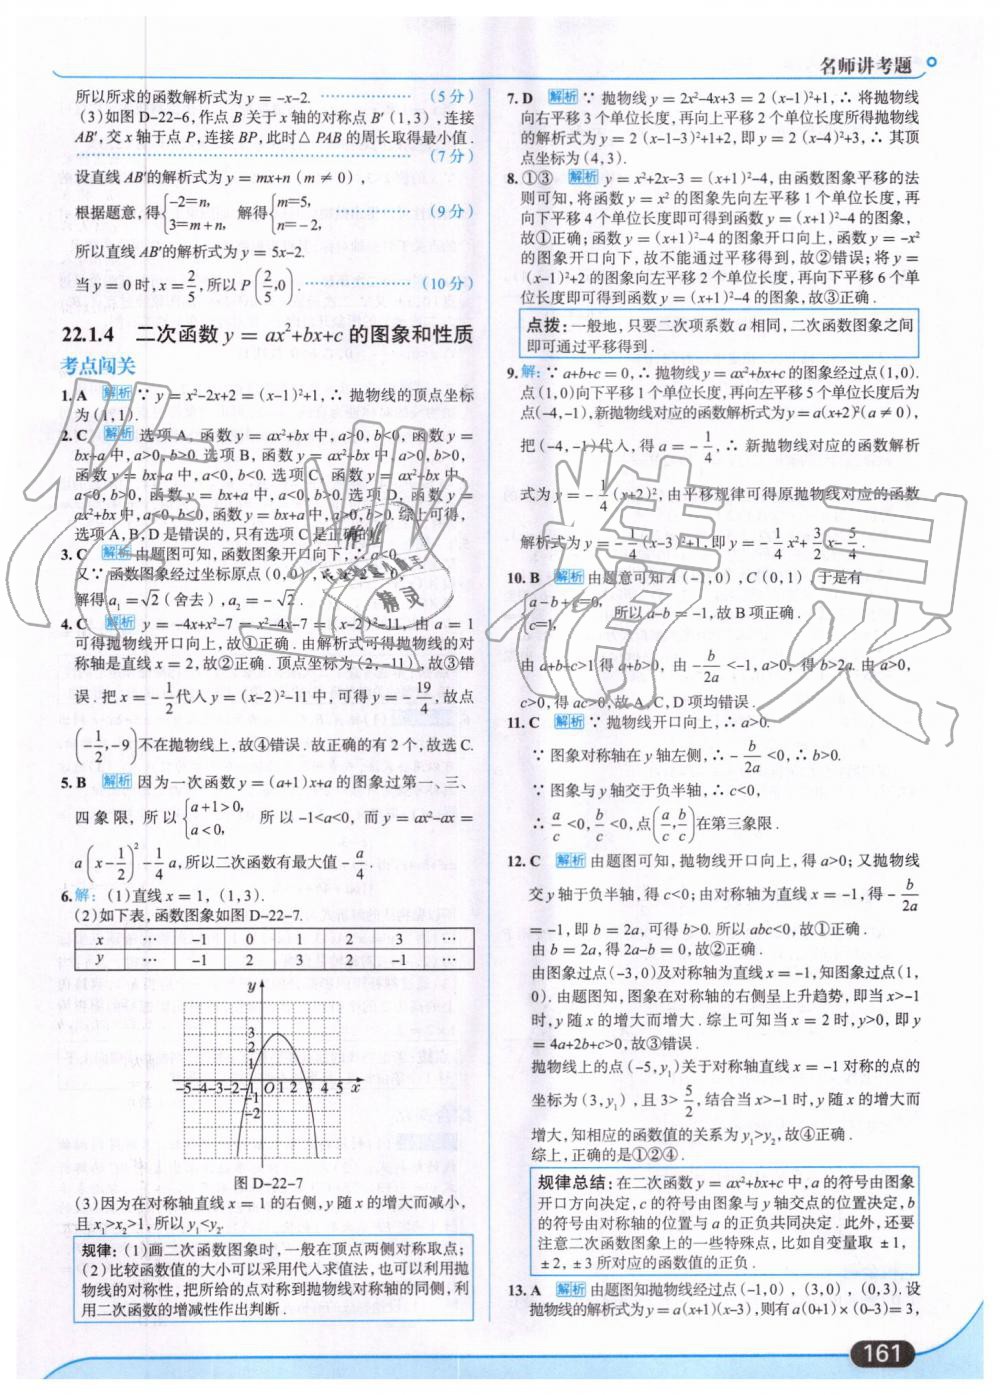 名师讲考题
所以所求的函数解析式为 y = -x-2. ………………(5 分)
(3)如图 D-22-6,作点 B 关于 x 轴的对称点 B′(1,3),连接
AB′,交 x 轴于点 P,连接 BP,此时△PAB 的周长取得最小值.
………………(7 分)
设直线 AB′的解析式为 y = mx+n (m ≠ 0),
根据题意,得{-2=n, 3=m+n, 解得{m=5, n=-2, ………(9 分)
所以直线 AB′的解析式为 y = 5x-2.
当 y = 0时,x = 2/5,所以 P(2/5,0). ………………(10 分)
22.1.4 二次函数 y = ax²+bx+c 的图象和性质
考点闯关
1. A 解析 ∵ y = x²-2x+2 = (x-1)²+1,∴ 抛物线的顶点坐标
为(1,1).
2. C 解析 选项 A, 函数 y = ax²+bx 中, a>0, b<0, 函数 y =
bx+a 中, a>0, b>0. 选项 B, 函数 y = ax²+bx 中, a>0, b>0,
函数 y = bx+a 中, a<0, b<0. 选项 C, 函数 y = ax²+bx 中,
a<0, b>0, 函数 y = bx+a 中, a<0, b>0. 选项 D, 函数 y =
ax²+bx 中, a<0, b<0, 函数 y = bx+a 中, a>0, b>0. 综上可得,
选项 A, B, D 是错误的,只有选项 C 是正确的.
3. C 解析 由题图可知,函数图象开口向下,∴ a<0.
又∵ 函数图象经过坐标原点(0,0),
解得 a₁ = √2 (舍去), a₂ = -√2 .
4. C 解析 y = -4x+x²-7 = x²-4x-7 = (x-2)²-11, 由 a = 1
可得抛物线开口向上,故①正确. 由解析式可得抛物线的对
称轴是直线 x = 2,故②正确. 顶点坐标为(2,-11),故③错
误. 把 x = -1/2 代入 y = (x-2)²-11 中, 可得 y = -19/4, 故点
(-1/2,-9)不在抛物线上,故④错误. 故正确的有 2 个,故选 C.
5. B 解析 因为一次函数 y = (a+1)x+a 的图象过第一、三、
四象限, 所以{a+1>0, a<0, 所以 -1<a<0, 而 y = ax²-ax =
a(x-1/2)²-1/4a,所以二次函数有最大值-a/4.
6. 解: (1)直线 x = 1, (1,3).
(2)如下表,函数图象如图 D-22-7.
x … -1 0 1 2 3 …
y … -1 2 3 2 -1 …
y
3
2
1
-5-4-3-2-1 O 1 2 3 4 5 x
-1
-2
图 D-22-7
(3)因为在对称轴直线 x = 1 的右侧, y 随 x 的增大而减小,
且 x₁>x₂>1,所以 y₁<y₂.
规律: (1)画二次函数图象时,一般在顶点两侧对称取点;
(2)比较函数值的大小可以采用代入求值法,也可以利用抛
物线的对称性,把所给的点对称到抛物线对称轴的同侧,利
用二次函数的增减性作出判断.
7. D 解析 ∵ 抛物线 y = 2x²-4x+3 = 2 (x-1)²+1,∴ 将抛物线
向右平移 3 个单位长度,再向上平移 2 个单位长度所得抛物线
的解析式为 y = 2 (x-1-3)²+1+2, 即 y = 2 (x-4)²+3,∴ 其顶
点坐标为(4,3).
8. ①③ 解析 y = x²+2x-3 = (x+1)²-4,由函数图象平移的法
则可知,将函数 y = x² 的图象先向左平移 1 个单位长度,再
向下平移 4 个单位长度即可得到函数 y = (x+1)²-4 的图象,
故①正确;函数 y = (x+1)²-4 的图象开口向上,函数 y = -x²
的图象开口向下,故不能通过平移得到,故②错误;将 y =
(x-1)²+2 的图象向左平移 2 个单位长度,再向下平移 6 个单
位长度即可得到函数 y = (x+1)²-4 的图象,故③正确.
点拨: 一般地,只要二次项系数 a 相同,二次函数图象之间
即可通过平移得到.
9. 解: ∵ a+b+c = 0,∴ 抛物线 y = ax²+bx+c 的图象经过点(1,0).
点(1,0)向下平移 1 个单位长度,再向左平移 5 个单位长度后为
点(-4,-1),新抛物线对应的函数解析式为 y = a(x+2)²(a ≠ 0),
把(-4,-1)代入,得 a = -1/4,∴ 新抛物线对应的函数解析
式为 y = -1/4(x+2)²,由平移规律可得原抛物线对应的函数
解析式为 y = -1/4(x-3)²+1,即 y = -1/4x²+3/2x-5/4.
10. B 解析 由题意可知 A(-1,0),C(0,1),于是有
{a-b+c=0, c=1, 所以 a-b = -1,故 B 项正确.
由 a+b+c>1得 a+b>0, 由 -b/2a <-1, a>0, 得 b>2a. 由 a>0,
c>0,得 ac>0,故 A,C,D 项均错误.
11. C 解析 ∵ 抛物线开口向上,∴ a>0.
∵ 图象对称轴在 y 轴左侧,∴ -b/2a <0,∴ b>0.
∵ 图象与 y 轴交于负半轴,∴ c<0,
∴ a/c <0, b/c <0,点(a/c, b/c)在第三象限.
12. C 解析 由题图可知,抛物线开口向上,得 a>0;又抛物线
交 y 轴于负半轴,得 c<0;由对称轴为直线 x = -1,得 -b/2a
= -1,即 b = 2a,可得 b>0. 所以 abc<0,故①正确.
由 b = 2a,得 2a-b = 0,故②正确.
由图象过点(-3,0)及对称轴为直线 x = -1,知图象过点(1,
0). 由题图知,图象在对称轴的右侧呈上升趋势,即当 x>-1
时, y 随 x 的增大而增大. 综上可知当 x = 2 时, y>0, 即 y
= 4a+2b+c>0,故③错误.
抛物线上的点(-5,y₁)关于对称轴直线 x = -1 对称的点的
坐标为(3,y₁),且 3> 5/2,结合当 x>-1 时,y 随 x 的增大而
增大,知相应的函数值的关系为 y₁>y₂,故④正确.
综上,正确的是①②④.
规律总结: 在二次函数 y = ax²+bx+c 中, a 的符号由图象
开口方向决定, c 的符号由图象与 y 轴交点的位置决定, b
的符号由对称轴的位置与 a 的正负共同决定. 此外,还要
注意二次函数图象上的一些特殊点,比如自变量取 ±1,
±2,±3 所对应的函数值的正负.
13. A 解析 由题图知抛物线经过点(-1,0),(3,0),(0,3).设
抛物线的解析式为 y = a(x+1)(x-3),则有 a(0+1)×(0-3)= 3,
161
作业精灵